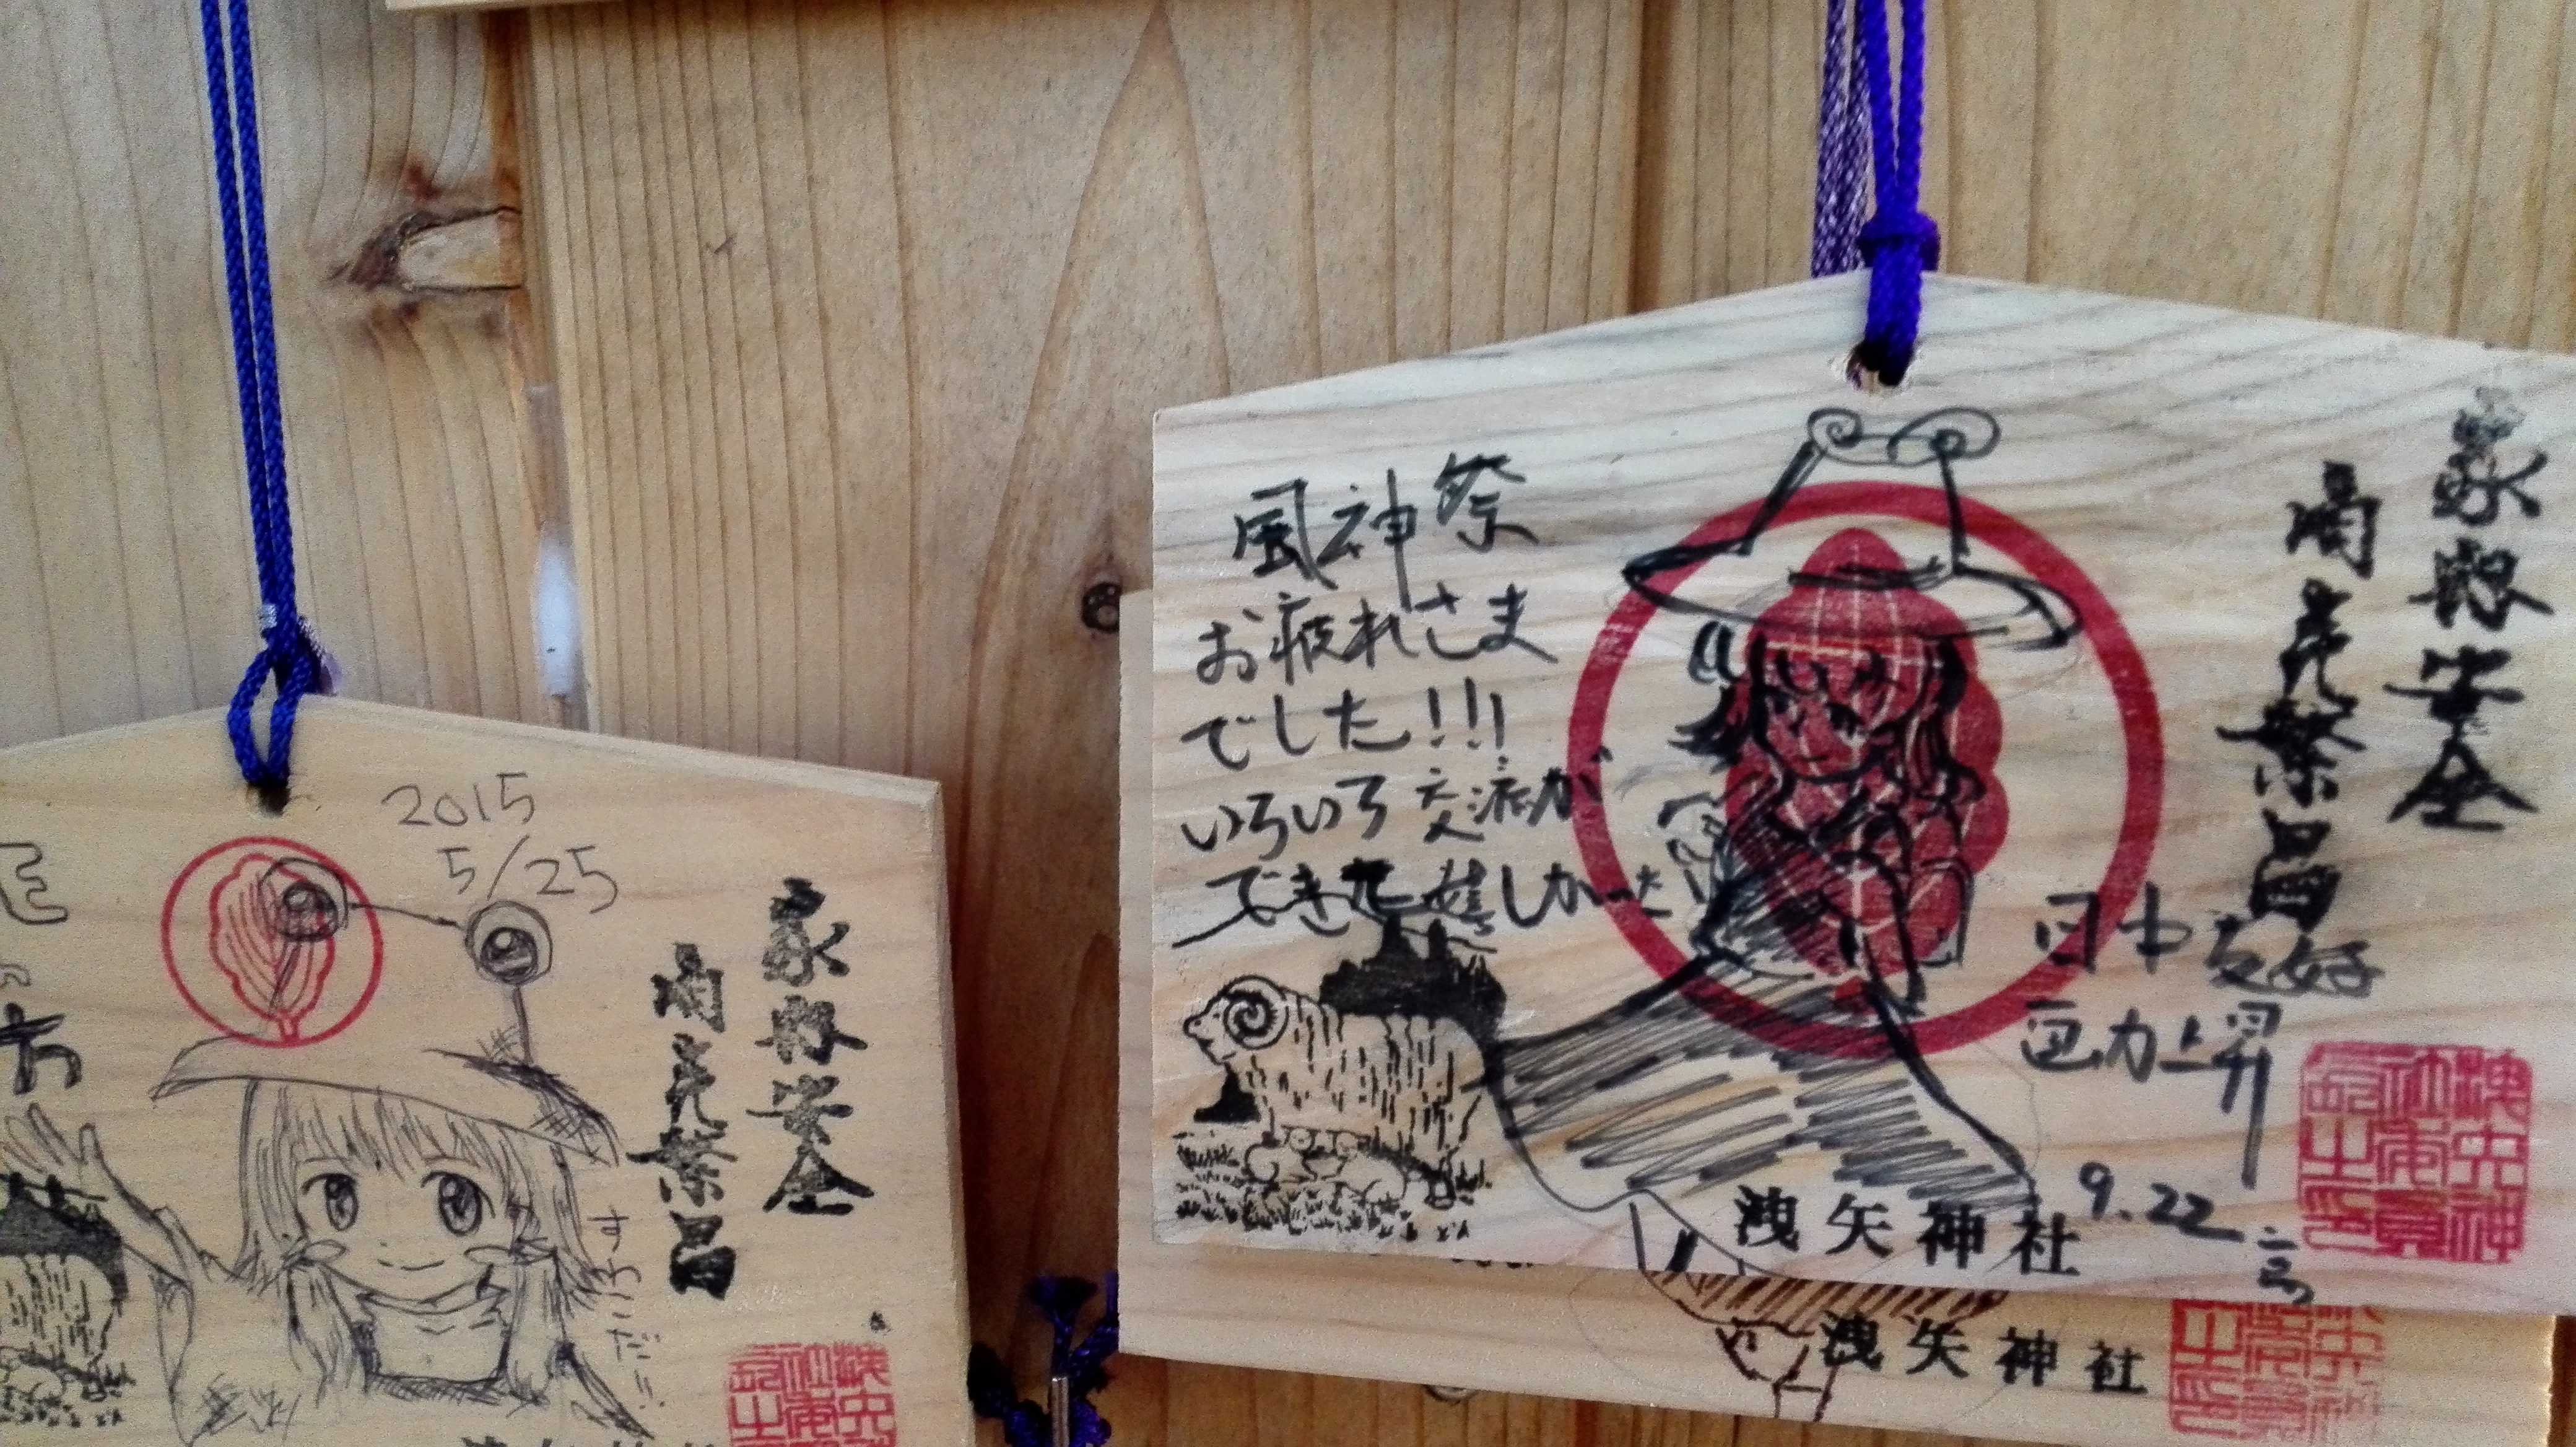 2015
5/25
家内安全
商売繁昌
すこうだ!!
風神祭
お疲れさま
でした!!!
いろいろ交流が
できた嬉しかった
家内安全
商売繁昌
日中友好
画力上昇
9.22
洩矢神社
洩矢神社